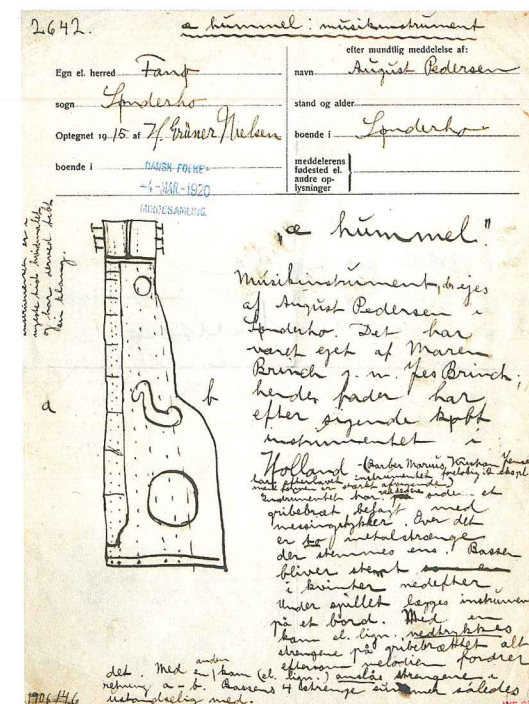 2642.
æ hummel: musikinstrument
Egn el. herred Fanø
sogn Sønderho
Optegnet 1915 af H. Grüner Nielsen
boende i
DANSK FOLKE-
-4-MAR-1920
MINDESAMLING.
efter mundtlig meddelelse af:
navn August Pedersen
stand og alder
boende i Sønderho
meddelerens
fødested el.
andre op-
lysninger
instrumentet er i
nyeste tid hvidmalet
og har dermed tabt
sin klang.
a
b
"æ hummel."
Musikinstrument, ejes
af August Pedersen i
Sønderho. Det har
været ejet af Maren
Brinch g. m. Jes Brinch;
hendes fader har
efter sigende købt
instrumentet i
Holland - (Barber Marius,
har efterlavet instrumentet
Instrumentet har på siden et
gribebræt belagt med
messingstykker. Over det
er to metalstrænge
der stemmes ens. Bassen
bliver stemt
i kvinter nedefter
Under spillet lægges instrumen
på et bord. Med en
kam el. lign. nedtrykkes
strengene på gribebrættet alt
eftersom melodien fordrer
det. Med en anden kam (el. lign.) anslås strengene i
retning a - b. Bassens 4 strenge summer således
ustandselig med.
1906/46